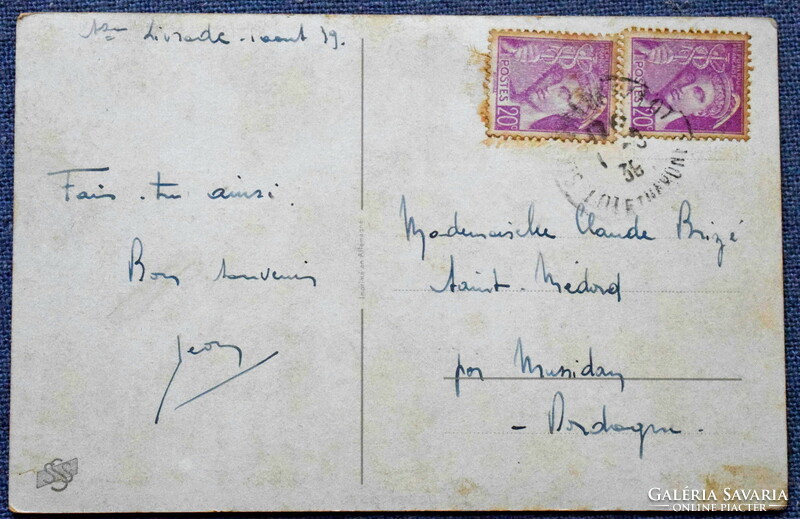 Ste Livrade. 1 aout 39.
Fais-tu ainsi.
Bon souvenir
Jean
Imprimé en Allemagne
SSS
POSTES
20c
POSTES
20c
LOT ET GARONNE
Mademoiselle Claude Brizé
Saint-Médard
par Mussidan
- Dordogne.
GALÉRIA SAVARIA
ONLINE PIACTÉR